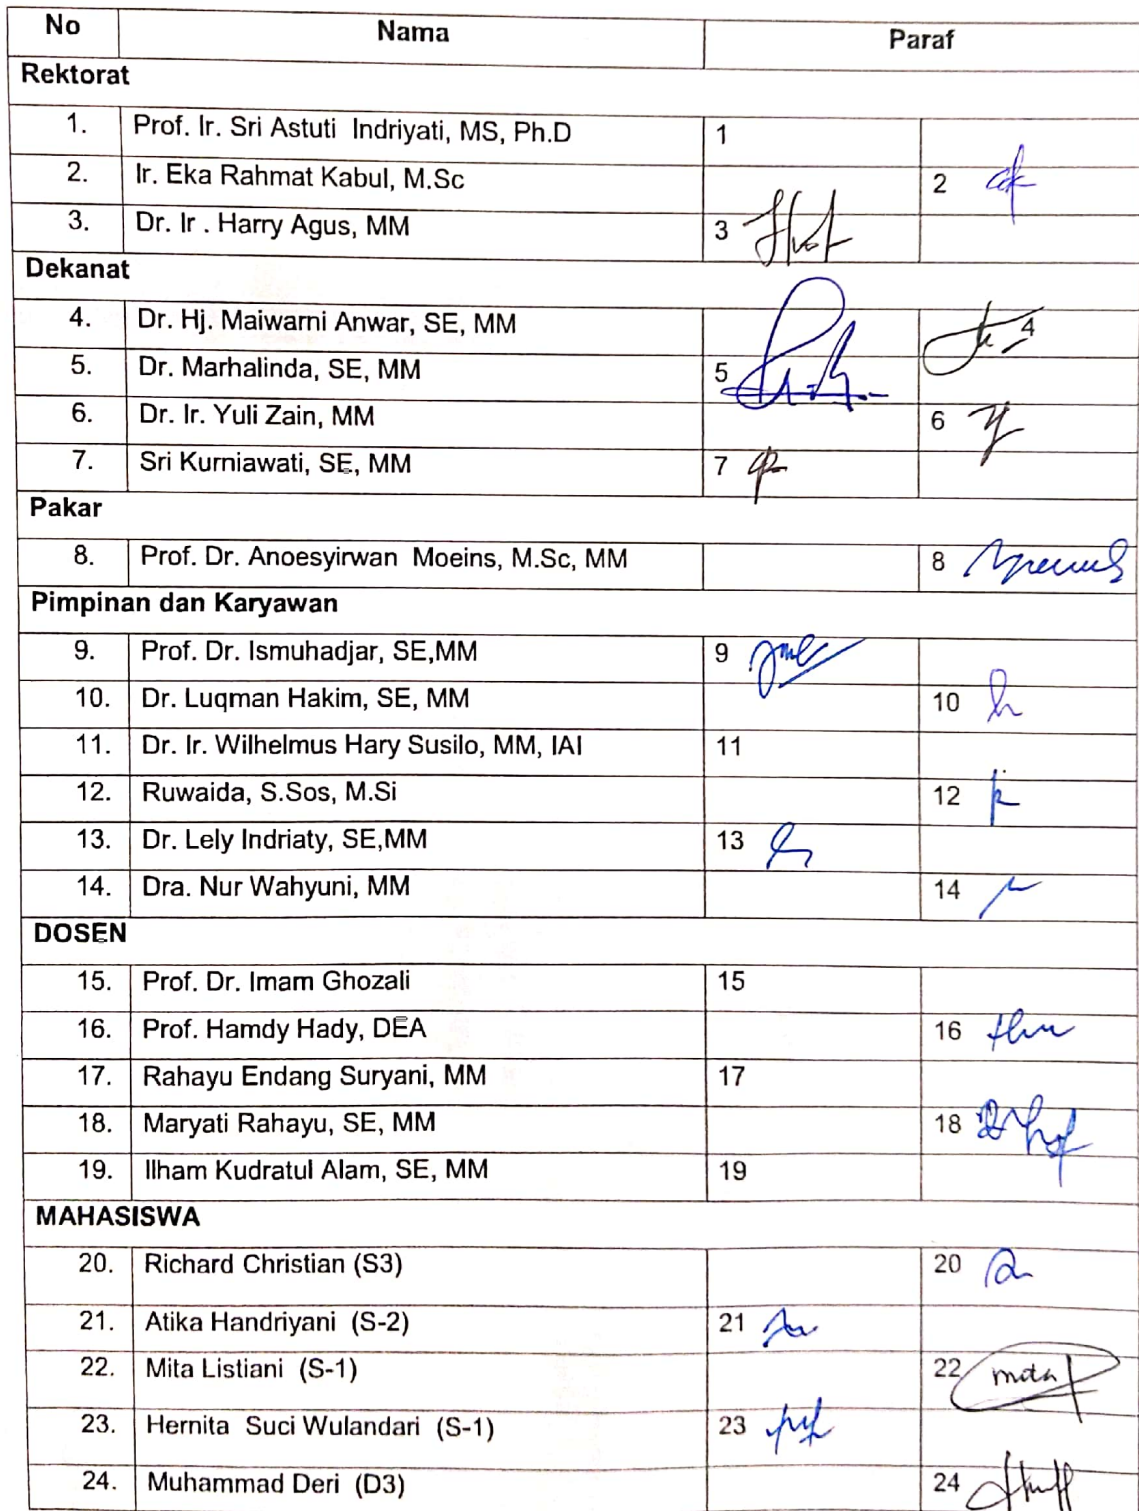 No Nama Paraf
Rektorat
1. Prof. Ir. Sri Astuti Indriyati, MS, Ph.D 1
2. Ir. Eka Rahmat Kabul, M.Sc 2
3. Dr. Ir . Harry Agus, MM 3
Dekanat
4. Dr. Hj. Maiwarni Anwar, SE, MM 4
5. Dr. Marhalinda, SE, MM 5
6. Dr. Ir. Yuli Zain, MM 6
7. Sri Kurniawati, SE, MM 7
Pakar
8. Prof. Dr. Anoesyirwan Moeins, M.Sc, MM 8
Pimpinan dan Karyawan
9. Prof. Dr. Ismuhadjar, SE,MM 9
10. Dr. Luqman Hakim, SE, MM 10
11. Dr. Ir. Wilhelmus Hary Susilo, MM, IAI 11
12. Ruwaida, S.Sos, M.Si 12
13. Dr. Lely Indriaty, SE,MM 13
14. Dra. Nur Wahyuni, MM 14
DOSEN
15. Prof. Dr. Imam Ghozali 15
16. Prof. Hamdy Hady, DEA 16
17. Rahayu Endang Suryani, MM 17
18. Maryati Rahayu, SE, MM 18
19. Ilham Kudratul Alam, SE, MM 19
MAHASISWA
20. Richard Christian (S3) 20
21. Atika Handriyani (S-2) 21
22. Mita Listiani (S-1) 22 mita
23. Hernita Suci Wulandari (S-1) 23
24. Muhammad Deri (D3) 24